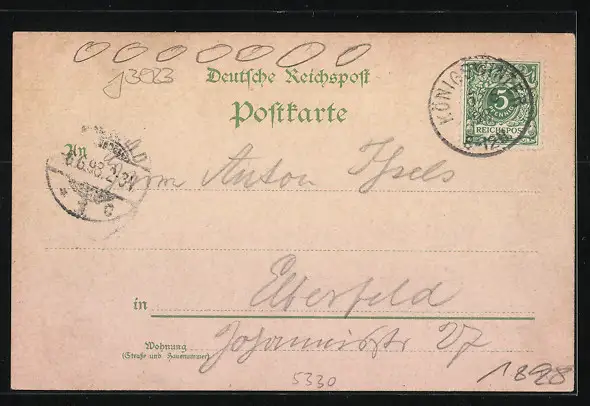 Deutsche Reichspost
Postkarte
KÖNIGSWINTER
5
REICHSPOST
An
6.6.98.
Herrn Anton Ipels
in Elberfeld
Wohnung
(Straße und Hausnummer)
Johannisstr 27
5330
1898